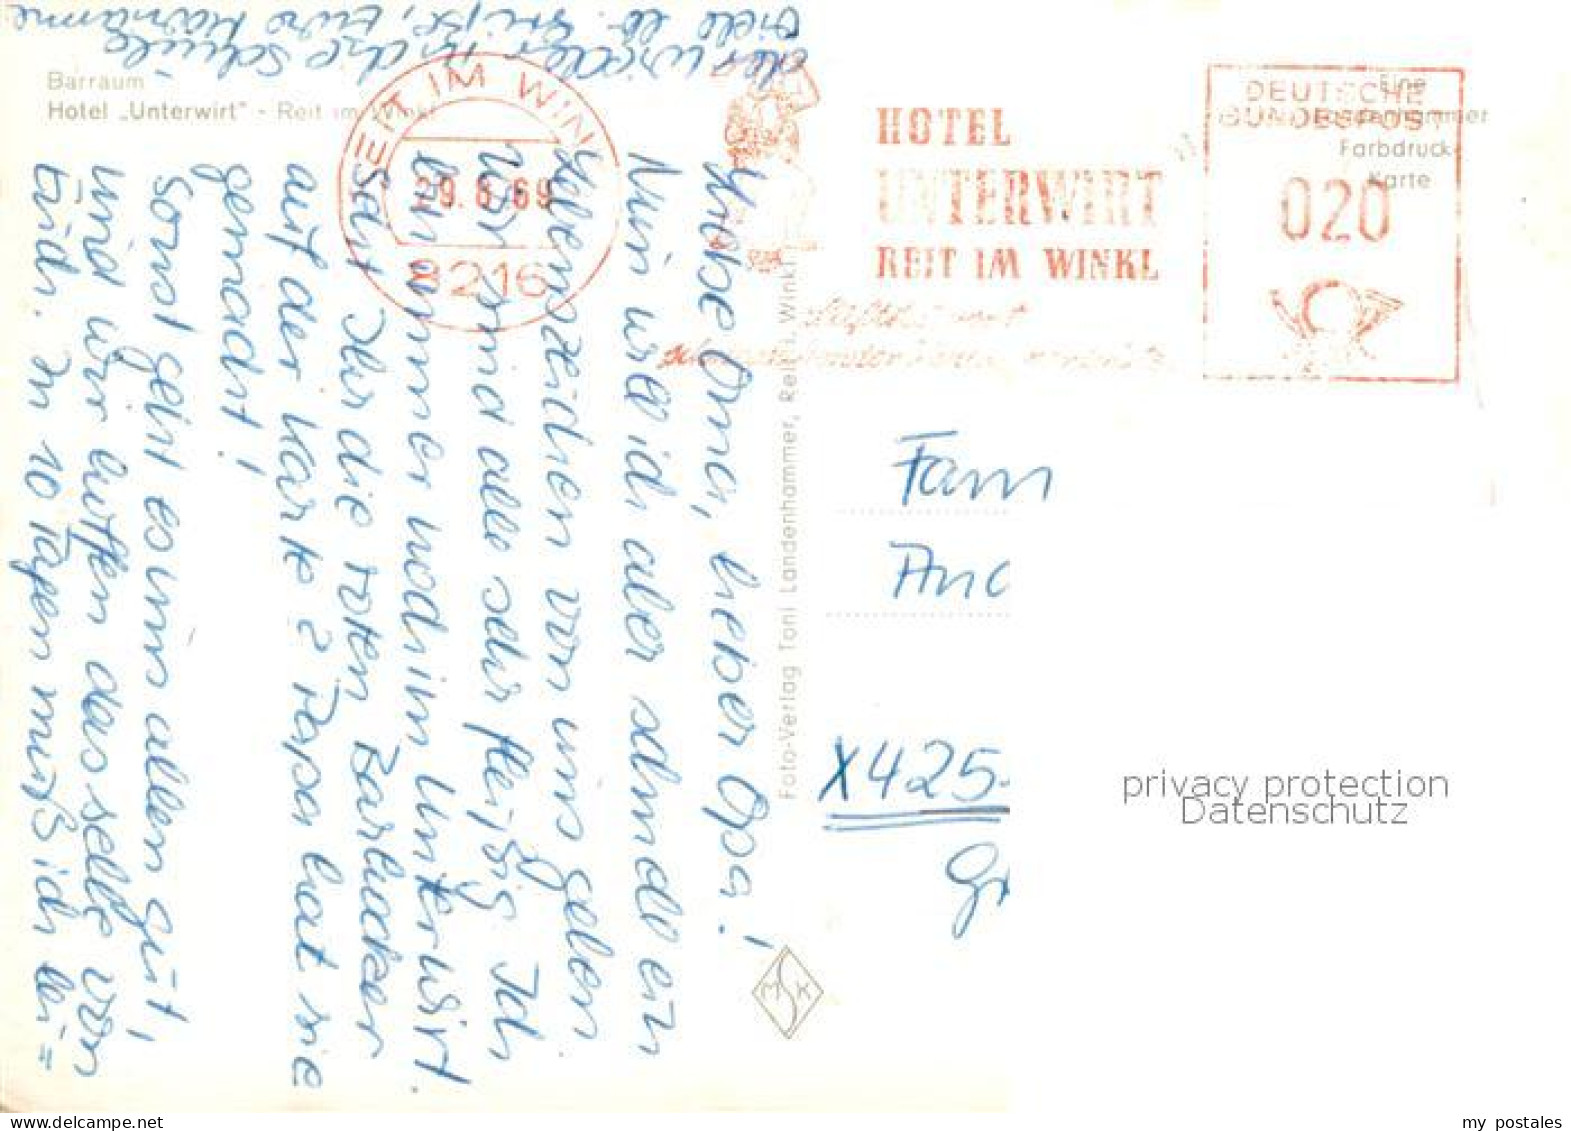 Barraum
Hotel „Unterwirt" - Reit im Winkl
REIT IM WINKL
29.8.69
8216
HOTEL
UNTERWIRT
REIT IM WINKL
DEUTSCHE
BUNDESPOST
020
Eine
Landenhammer
Farbdruck-
Karte
Foto-Verlag Toni Landenhammer, Reit i. Winkl
MSK
Liebe Oma, lieber Opa!
Nun will ich aber schnell ein
Lebenszeichen von uns geben
Wir sind alle sehr fleißig. Ich
bin immer noch im Unterwirt.
Seht Ihr die roten Barhocker
auf der Karte? Papa hat sie
gemacht!
Sonst geht es uns allen gut,
und wir hoffen dasselbe von
Euch. In 10 Tagen muß ich lei=
der wieder in die Schule.
Viele lb. Grüße, Eure
Fam
And
X425-
Gr
privacy protection
Datenschutz
my postales